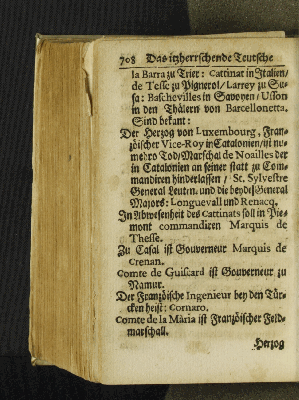 708 Das itzherrschende Teutsche
la Barra zu Trier: Cattinat in Italien/
de Tesse zu Pignerol/ Larrey zu Su-
sa: Baschevilles in Savoyen/ Usson
in den Thälern von Barcellonetta.
Sind bekant:
Der Hertzog von Luxembourg, Fran-
zöischer Vice-Roy in Catalonien/ ist nu-
mehro Tod/ Marschal de Noailles der
in Catalonien an seiner statt zu Com-
mandiren hinderlassen / St. Sylvestre
General Leuten. und die beyde General
Majors: Longuevall und Renacq.
In Abwesenheit des Cattinats soll in Pie-
mont commandiren Marquis de
Thesse.
Zu Casal ist Gouverneur Marquis de
Crenan.
Comte de Guiscard ist Gouverneur zu
Namur.
Der Französche Ingenieur bey den Tür-
cken heist: Cornaro.
Comte de la Mària ist Französcher Feld-
marschall.
Herzog